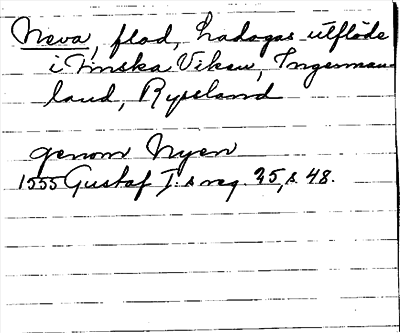 Neva, flod, Ladogas utflöde
i Finska Viken, Ingerman-
land, Ryssland
genom Nyen
1555 Gustaf I:s reg. 25, s. 48.